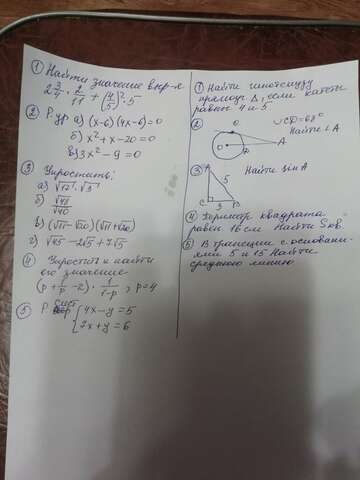 ① Найти значение выр-я
2 3/4 · 2/11 + (4/5)² · 5
② Р. ур а) (x-6)(4x-6)=0
б) x²+x-20=0
в) 3x²-9=0
③ Упростить:
а) √12 · √3
б) √48/√40
в) (√11-√20)(√11+√20)
г) √45 - 2√5 + 7√5
④ Упростить и найти
его значение
(p + 1/p - 2) · 1/(1-p), p=4
⑤ Р. сист
{ 4x-y=5
2x+y=6
① Найти гипотенузу
прямоуг Δ, если катеты
равны 4 и 5
② O ◡CD=68°
Найти ∠A
A
③ A Найти sin A
5
C 3 B
④ Периметр квадрата
равен 16 см Найти Sкв.
⑤ В трапеции с основани-
ями 5 и 15 Найти
среднюю линию